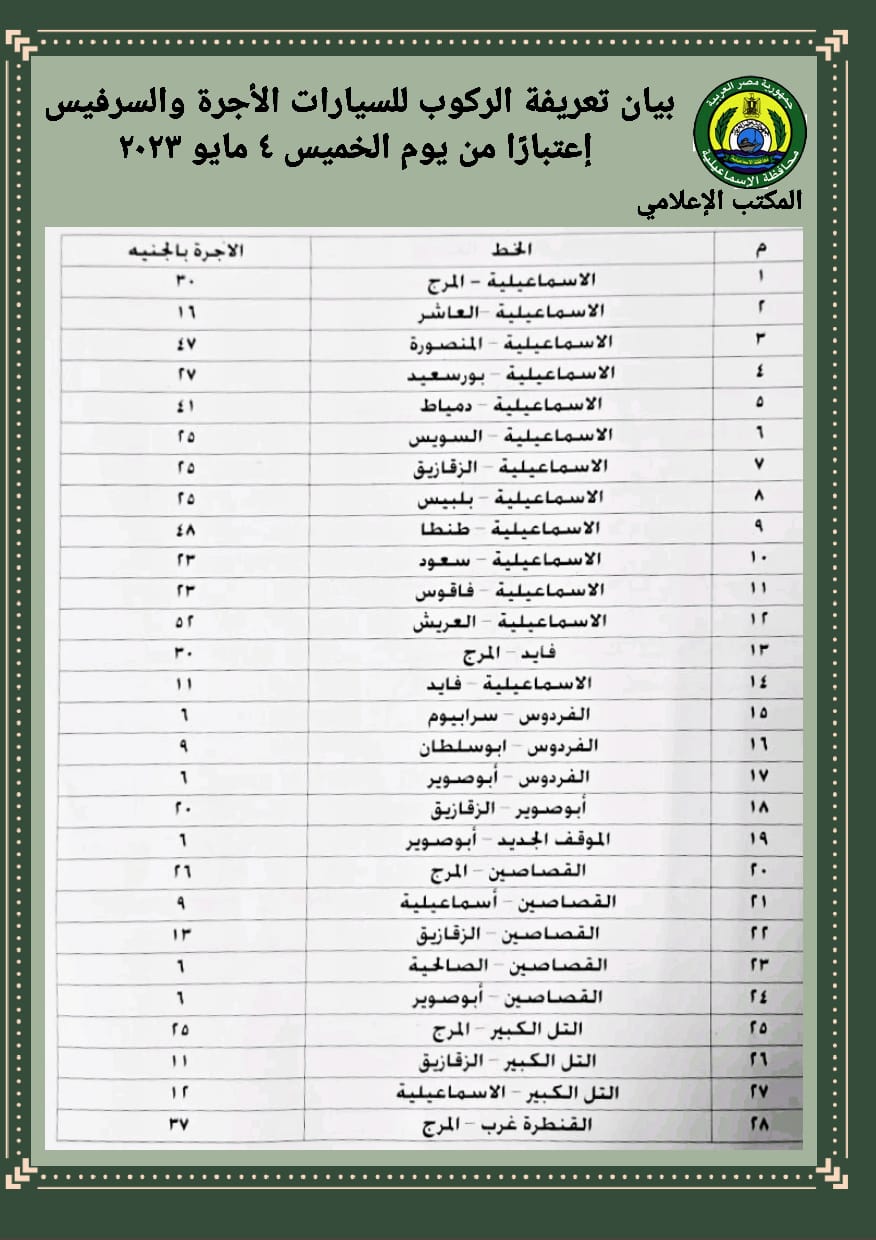 جمهورية مصر العربية
محافظة الإسماعيلية
بيان تعريفة الركوب للسيارات الأجرة والسرفيس
إعتبارًا من يوم الخميس ٤ مايو ٢٠٢٣
المكتب الإعلامي
م الخط الاجرة بالجنيه
١ الاسماعيلية - المرج ٣٠
٢ الاسماعيلية -العاشر ١٦
٣ الاسماعيلية - المنصورة ٤٧
٤ الاسماعيلية - بورسعيد ٢٧
٥ الاسماعيلية - دمياط ٤١
٦ الاسماعيلية - السويس ٢٥
٧ الاسماعيلية - الزقازيق ٢٥
٨ الاسماعيلية - بلبيس ٢٥
٩ الاسماعيلية - طنطا ٤٨
١٠ الاسماعيلية - سعود ٢٣
١١ الاسماعيلية - فاقوس ٢٣
١٢ الاسماعيلية - العريش ٥٢
١٣ فايد - المرج ٣٠
١٤ الاسماعيلية - فايد ١١
١٥ الفردوس - سرابيوم ٦
١٦ الفردوس - ابوسلطان ٩
١٧ الفردوس - أبوصوير ٦
١٨ أبوصوير - الزقازيق ٢٠
١٩ الموقف الجديد - أبوصوير ٦
٢٠ القصاصين - المرج ٢٦
٢١ القصاصين - أسماعيلية ٩
٢٢ القصاصين - الزقازيق ١٣
٢٣ القصاصين - الصالحية ٦
٢٤ القصاصين - أبوصوير ٦
٢٥ التل الكبير - المرج ٢٥
٢٦ التل الكبير - الزقازيق ١١
٢٧ التل الكبير - الاسماعيلية ١٢
٢٨ القنطرة غرب - المرج ٣٧